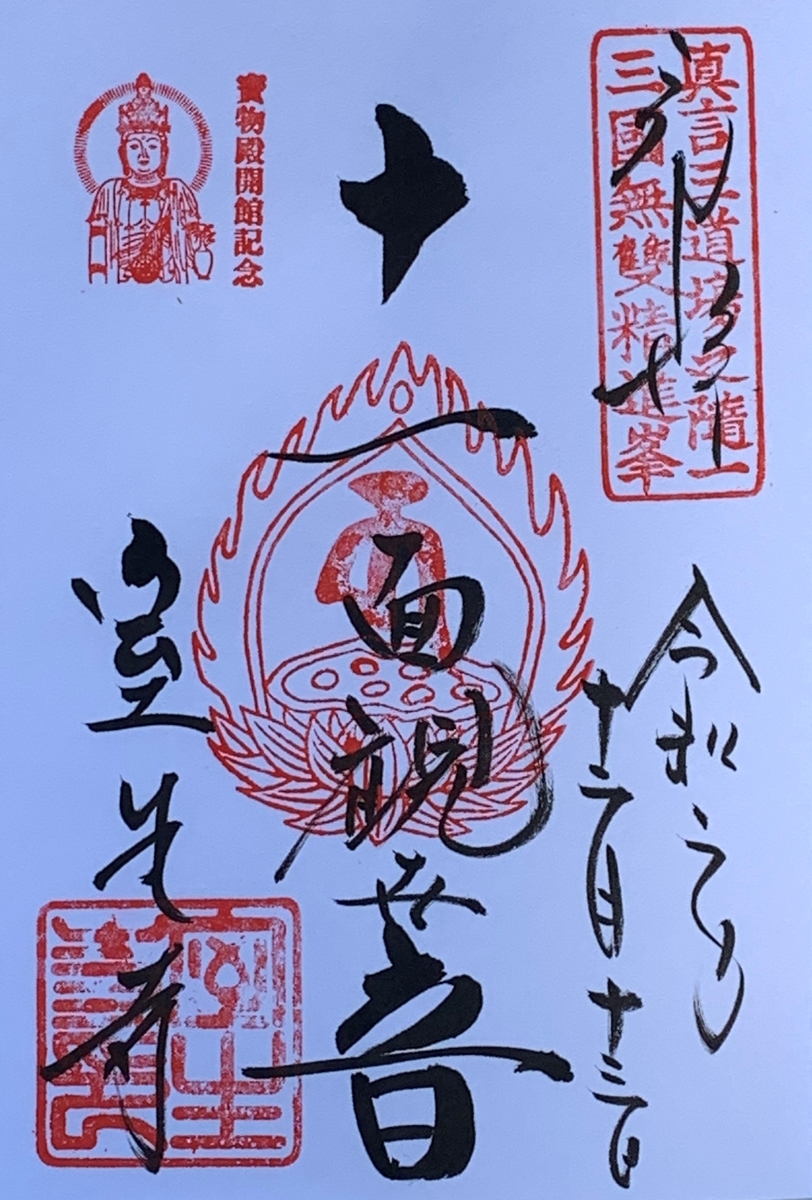 真言三道場之隨一
三國無雙精進峯
令和
十二月十三日
十一面観世音
寶物殿開館記念
室生寺